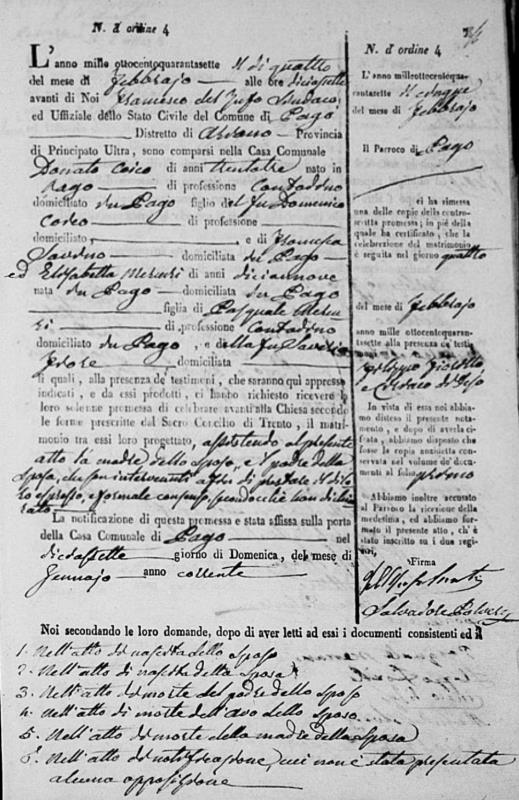 N. d'ordine 4
L'anno mille ottocentoquarantasette il dì quattro
del mese di Febbrajo alle ore diciasette
avanti di Noi Francesco del Sindaco,
ed Uffiziale dello Stato Civile del Comune di Pago
Distretto di Provincia
di Principato Ultra, sono comparsi nella Casa Comunale
Donato Coico di anni trentatre nato in
Pago di professione Contadino
domiciliato in Pago figlio del fu Domenico
Coico di professione
domiciliato, e di Francesca
domiciliata in Pago
ed Elisabetta Mercuri di anni diciannove
nata in Pago domiciliata in Pago
figlia di Pasquale Mercu
ri di professione Contadino
domiciliato in Pago, e della fu Saveria
domiciliata
li quali, alla presenza de' testimonj, che saranno qui appresso
indicati, e da essi prodotti, ci hanno richiesto ricevere la
loro solenne promessa di celebrare avanti alla Chiesa secondo
le forme prescritte dal Sacro Concilio di Trento, il matri-
monio tra essi loro progettato, assistendo al presente
atto la madre dello sposo, e il padre della
sposa, che son intervenuti affin di prestare il di lo
ro espresso, e formale consenso, secondocchè han dichia
rato.
La notificazione di questa promessa e stata affissa sulla porta
della Casa Comunale di Pago nel
diciassette giorno di Domenica, del mese di
Gennajo anno corrente
N. d'ordine 4
L'anno milleottocentoqua-
rantasette il cinque
del mese di Febbrajo
Il Parroco di Pago
ci ha rimessa
una delle copie della contro-
scritta promessa; in piè della
quale ha certificato, che la
celebrazione del matrimonio
è seguita nel giorno quattro
del mese di Febbrajo
anno mille ottocentoquarantasette
alla presenza de' testi
In vista di essa noi abbiamo
disteso il presente nota-
mento, e dopo di averla ci-
frata, abbiamo disposto che
fosse la copia anzidetta con-
servata nel volume de' docu-
menti al foglio primo
Abbiamo inoltre accusato
al Parroco la ricezione della
medesima, ed abbiamo for-
mato il presente atto, ch'è
stato inscritto su i due regi-
stri,
Firma
Salvadore
Noi secondando le loro domande, dopo di aver letti ad essi i documenti consistenti ed il
1. Nell'atto di nascita dello sposo
2. Nell'atto di nascita della sposa
3. Nell'atto di morte del padre dello sposo
4. Nell'atto di morte dell'avo dello sposo
5. Nell'atto di morte della madre della sposa
6. Nell'atto di notificazione, cui non è stata presentata
alcuna opposizione